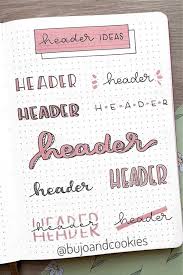 header IDEAS
HEADER header
HEADER H-E-A-D-E-R
header
header HEADER
HEADER header
@bujoandcookies